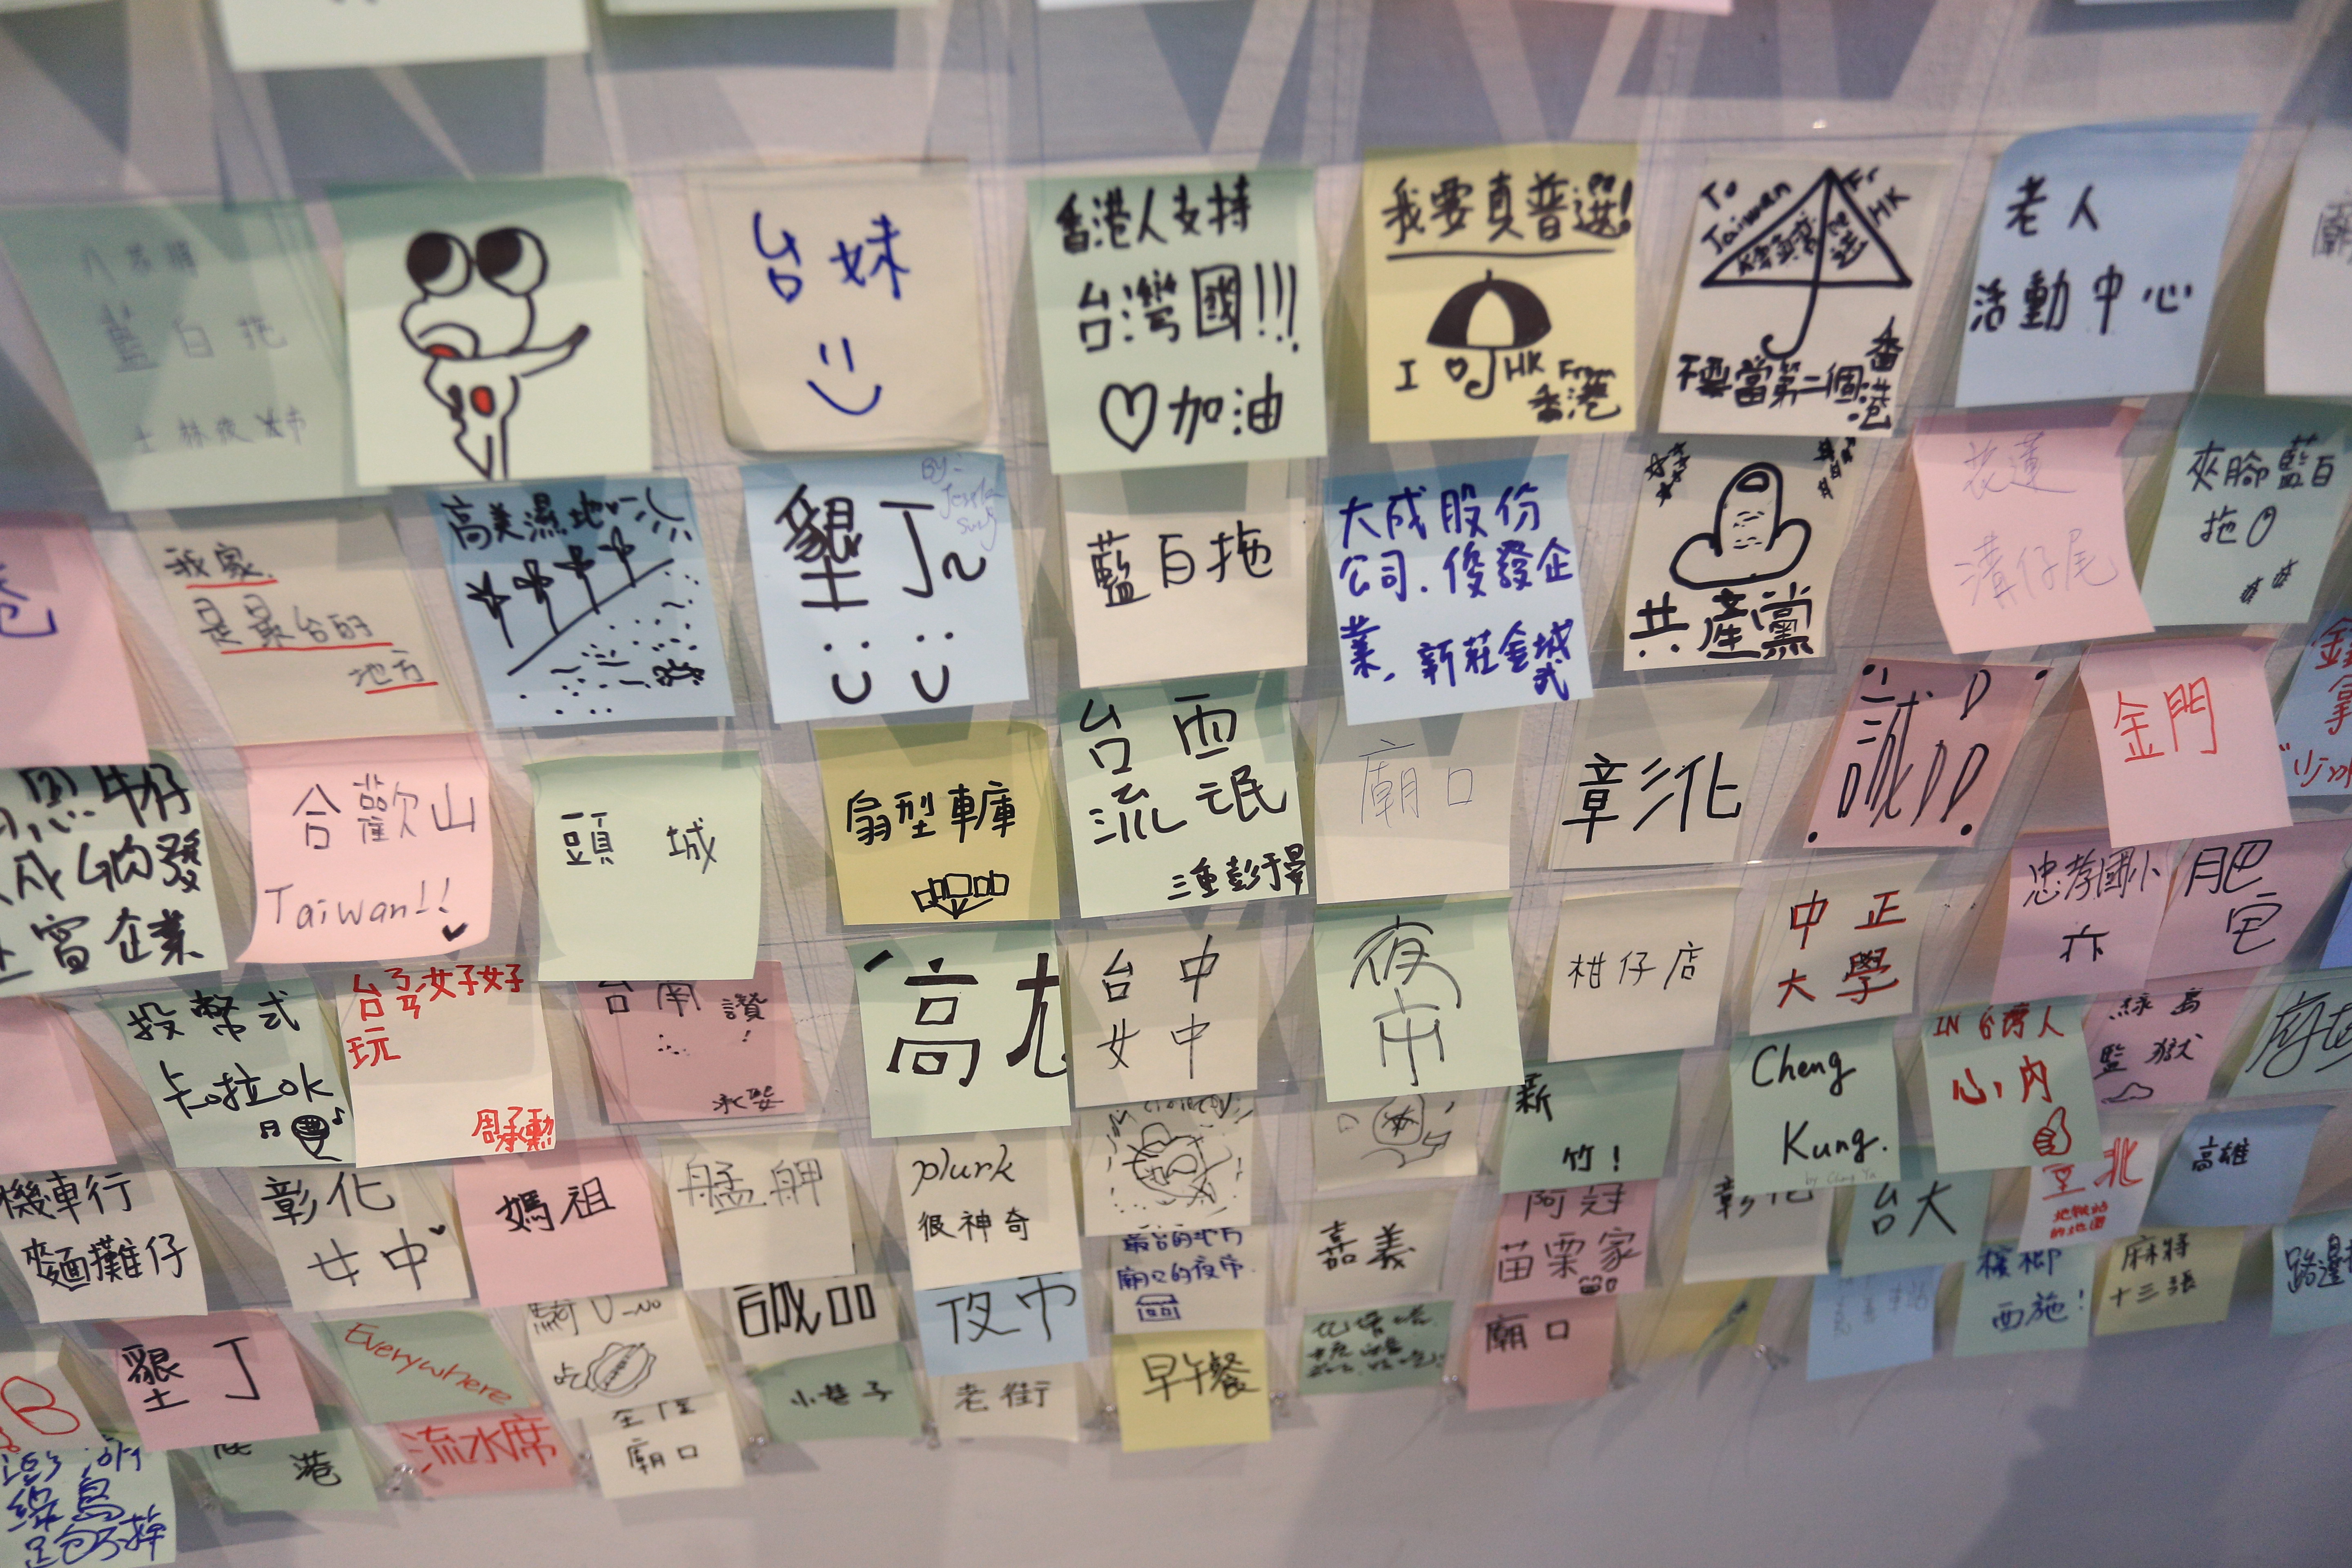 藍白拖
士林夜市
台妹
香港人支持
台灣國!!!
♡加油
我要真普選!
I ♡ HK From
香港
To
Taiwan
Fr
HK
不要當第二個香港
老人
活動中心
我家
是最台的
地方
高美濕地
墾丁~
藍白拖
大成股份
公司.俊發企
業,新莊金城
武
共產黨
花蓮
溝仔尾
夾腳藍白
拖
合歡山
Taiwan!!
頭城
扇型車庫
台西
流氓
三重彭于晏
廟口
彰化
誠品
金門
投幣式
卡啦OK
台灣女子好好
玩
周承勳
台南讚
!
高雄
台中
女中
夜市
柑仔店
中正
大學
忠孝國小
肥
宅
新
竹!
Cheng
Kung.
IN 台灣人
心內
綠島
監獄
機車行
麵攤仔
彰化
女中
媽祖
艋舺
plurk
很神奇
最台的地方
廟口的夜市
嘉義
阿冠
苗栗家
彰化
台大
北
高雄
墾丁
Everywhere
吃
誠品
夜市
早午餐
廟口
檳榔
西施!
麻將
十三張
路邊
港
流水席
廟口
小巷子
老街
綠島